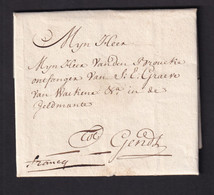 Myn Heer
Myn Heer Van den
ontfanger Van S: E: Graeve
Van Wackene &a in de
Geldmunte
tot Gendt
francq